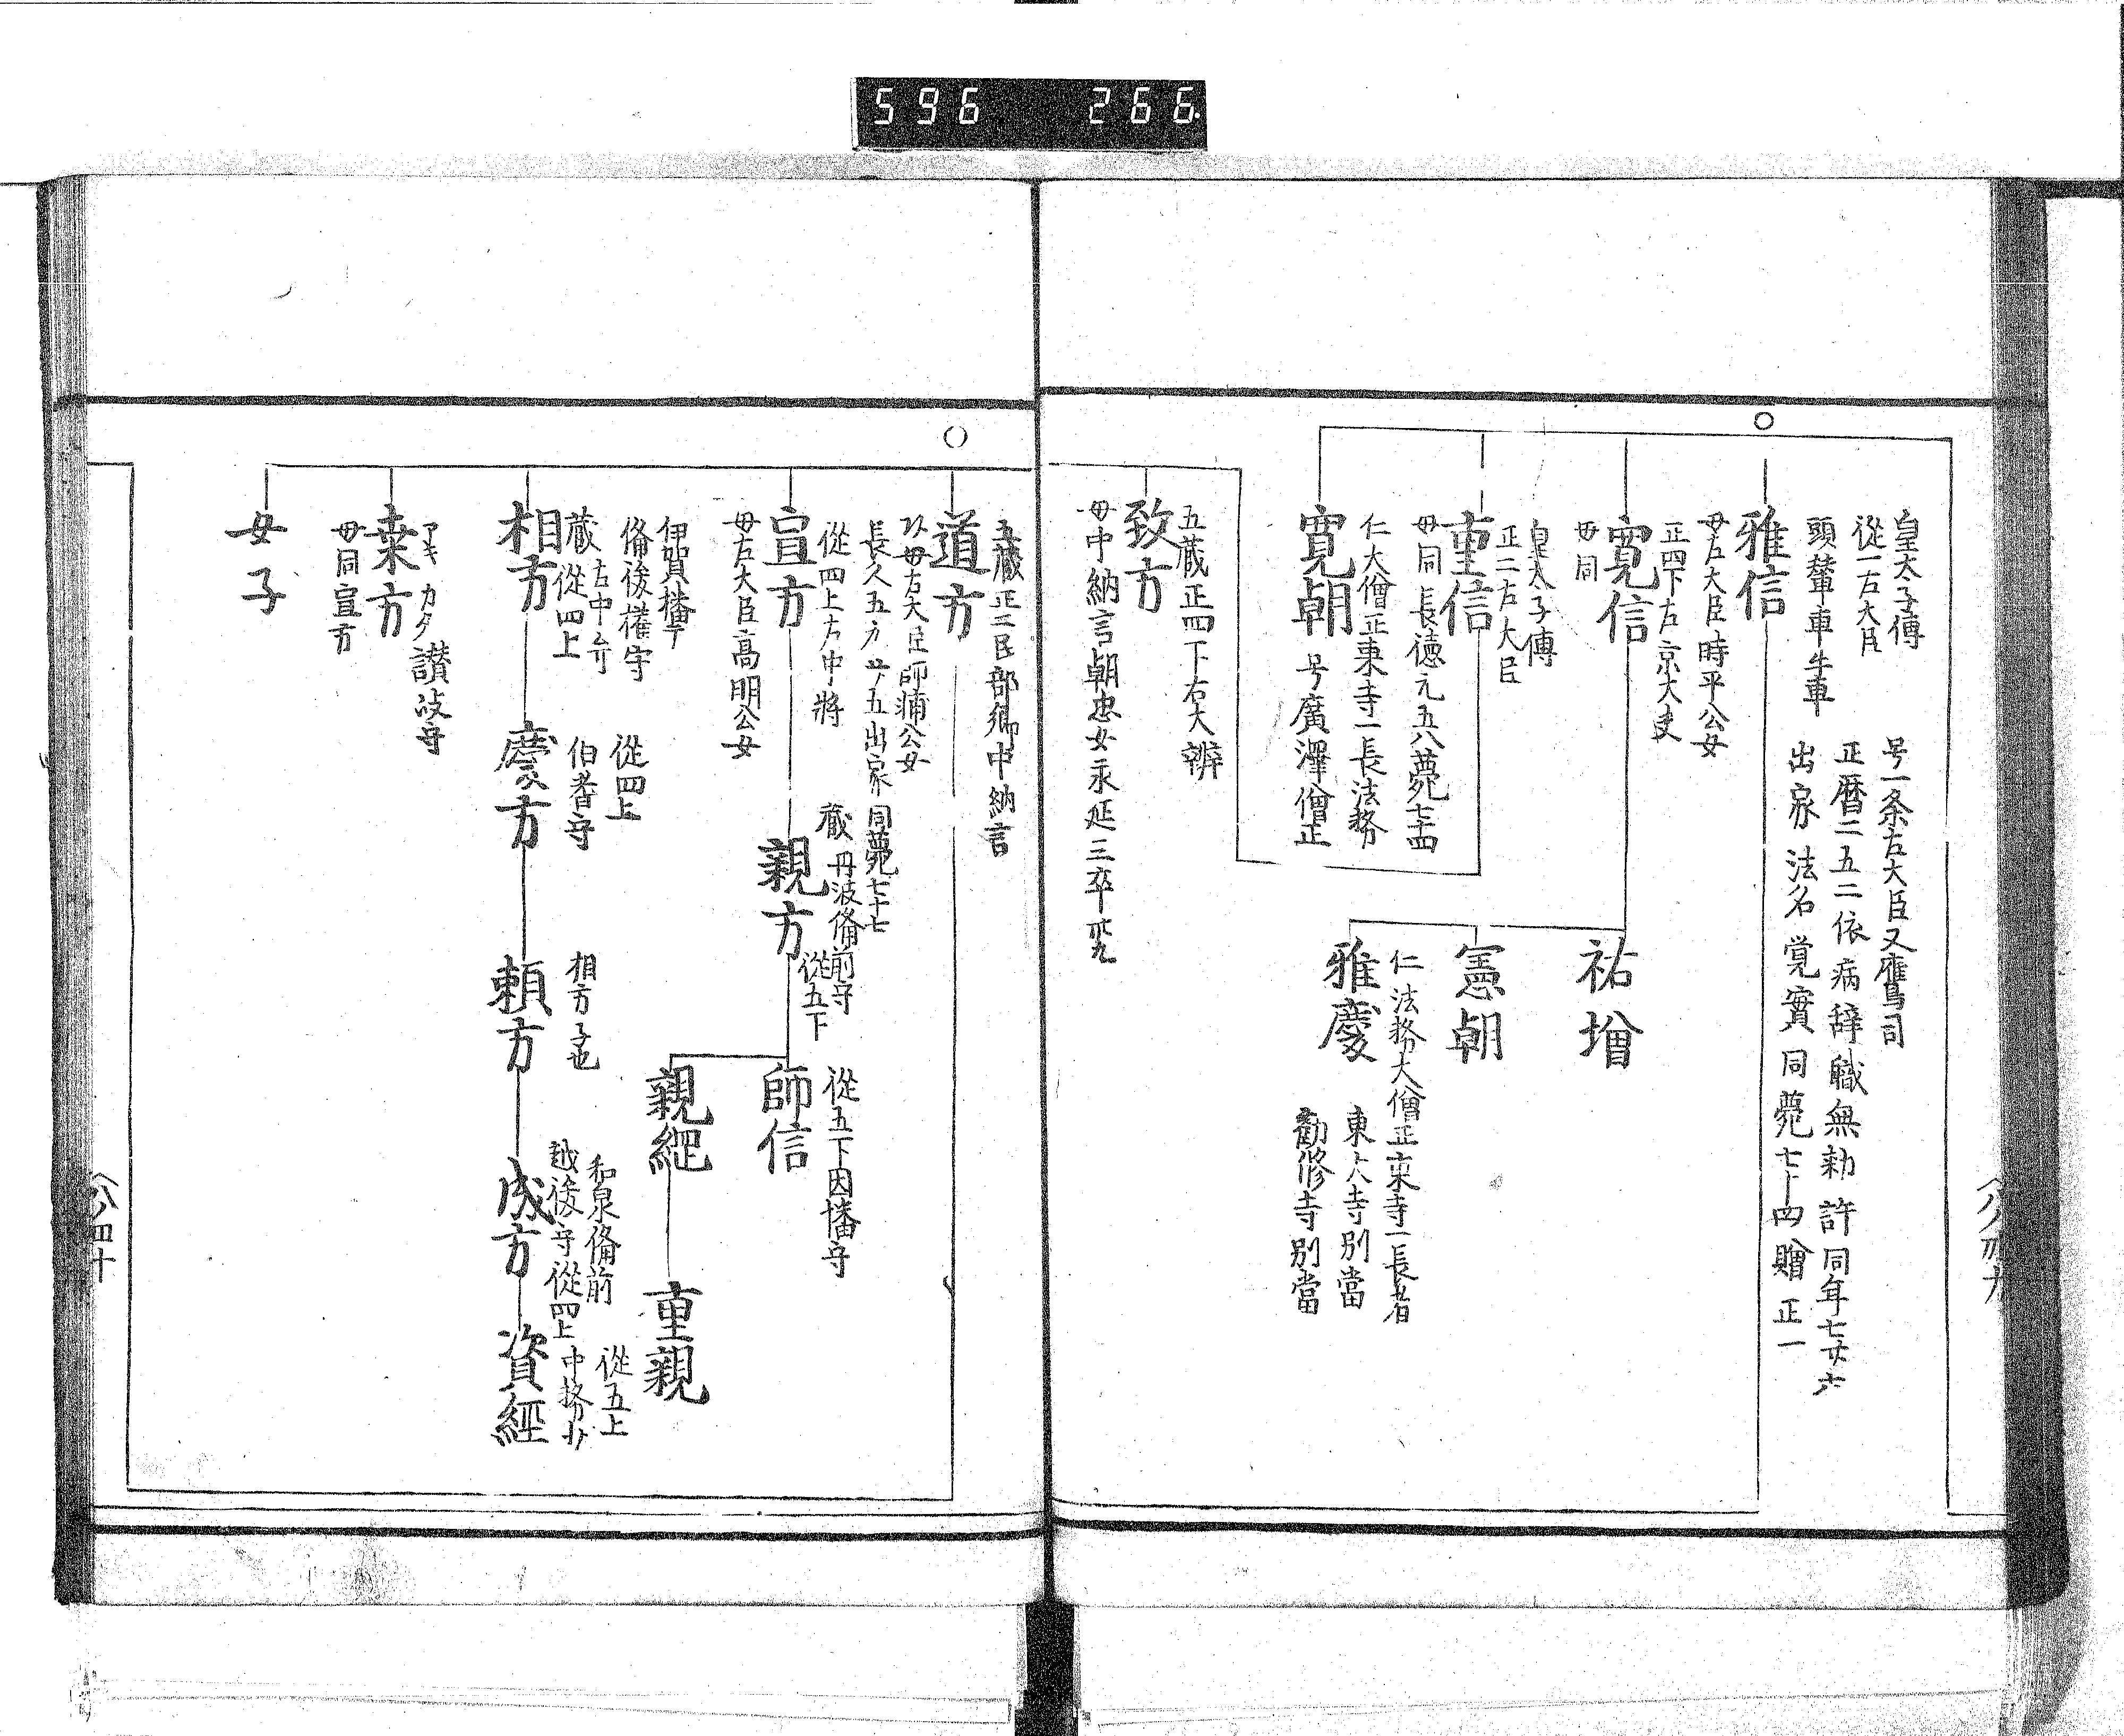 596 266
皇太子傅
從一左大臣
頭輦車牛車
号一条左大臣又鷹司
正暦二五二依病辞職無勅許同年七廿六
出家法名覚實同薨七十四贈正一
雅信
母左大臣時平公女
正四下左京大夫
寛信
母同
祐増
憲朝
仁法務大僧正東寺一長者
雅慶
東大寺別當
勸修寺別當
皇太子傅
正二左大臣
重信
母同長徳元五八薨七十四
仁大僧正東寺一長法務
寛朝
号廣澤僧正
五蔵正四下右大辨
致方
母中納言朝忠女永延三卒
五蔵正二民部卿中納言
道方
母左大臣師輔公女
長久五廿五出家同薨七十七
從四上右中將
宣方
母左大臣高明公女
蔵丹波備前守
從五下
親方
從五下因幡守
師信
親經
重親
伊賀權守
備後權守
蔵右中弁
從四上
相方
從四上
伯耆守
慶方
相方子也
頼方
和泉備前
越後守從四上
成方
從五上
中務少
資經
アキカタ
讃岐守
乗方
母同宣方
女子
八ノ四十